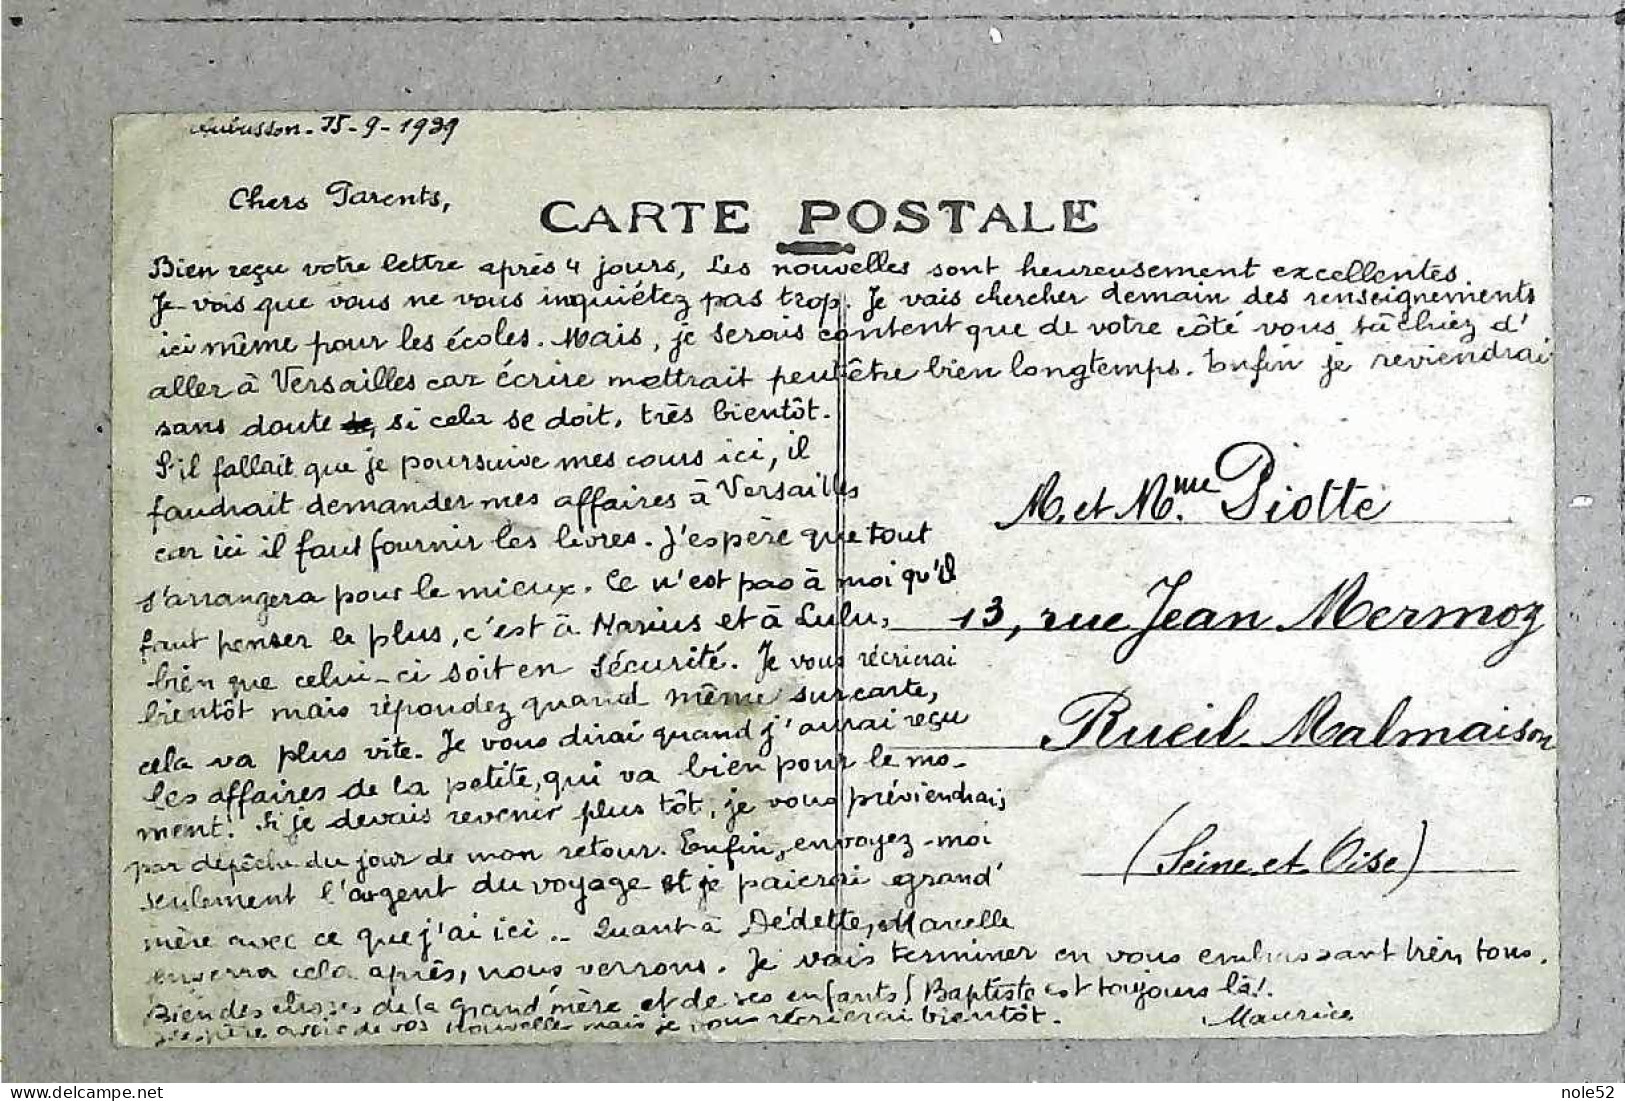 Aubusson - 15-9-1939
Chers Parents,
CARTE POSTALE
Bien reçu votre lettre après 4 jours, Les nouvelles sont heureusement excellentes.
Je vois que vous ne vous inquiétez pas trop. Je vais chercher demain des renseignements
ici même pour les écoles. Mais, je serais content que de votre côté vous tâchiez d'
aller à Versailles car écrire mettrait peut être bien longtemps. Enfin je reviendrai
sans doute si cela se doit, très bientôt.
S'il fallait que je poursuive mes cours ici, il
faudrait demander mes affaires à Versailles
car ici il faut fournir les livres. J'espère que tout
s'arrangera pour le mieux. Ce n'est pas à moi qu'il
faut penser le plus, c'est à Marius et à Lulu,
bien que celui-ci soit en sécurité. Je vous récrirai
bientôt mais répondez quand même sur carte,
cela va plus vite. Je vous dirai quand j'aurai reçu
les affaires de la petite, qui va bien pour le mo-
ment. Si je devais revenir plus tôt, je vous préviendrais
par dépêche du jour de mon retour. Enfin, envoyez-moi
seulement l'argent du voyage et je paierai grand'
mère avec ce que j'ai ici .. Quant à Dédette, Marcelle
enverra cela après, nous verrons. Je vais terminer en vous embrassant très tous.
Bien des choses de la grand'mère et de ses enfants! Baptiste est toujours là!.
J'espère avoir de vos nouvelles mais je vous récrirai bientôt.
Maurice
M. et Mme. Piotte
13, rue Jean Mermoz
Rueil-Malmaison
(Seine et Oise)
nole52